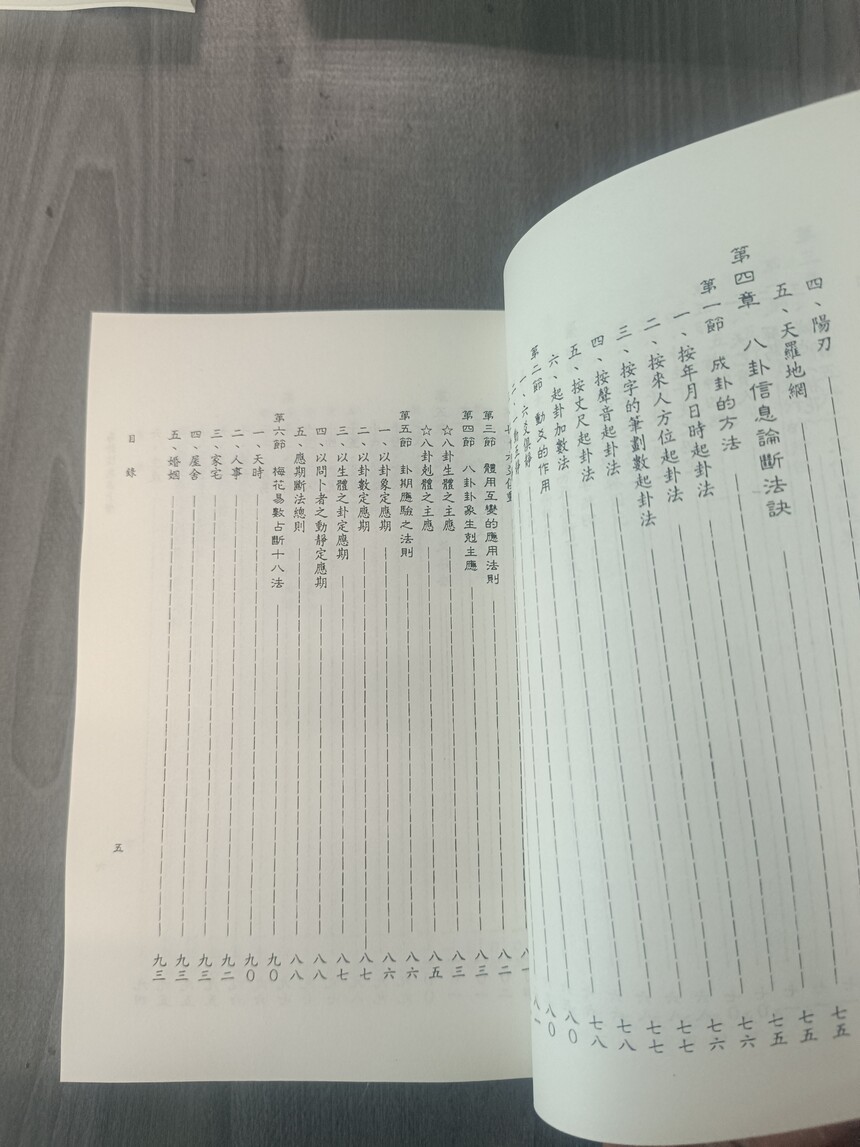 四、陽刃 七五
五、天羅地網 七五
第四章 八卦信息論斷法訣 七五
第一節 成卦的方法 七六
一、按年月日時起卦法 七六
二、按來人方位起卦法 七七
三、按字的筆劃數起卦法 七七
四、按聲音起卦法 七八
五、按丈尺起卦法 七八
六、起卦加數法 八〇
第二節 動爻的作用 八〇
一、六爻俱靜 八一
第三節 體用互變的應用法則 八二
第四節 八卦卦象生剋主應 八三
☆八卦生體之主應 八三
☆八卦剋體之主應 八五
第五節 卦期應驗之法則 八六
一、以卦象定應期 八六
二、以卦數定應期 八七
三、以生體之卦定應期 八七
四、以問卜者之動靜定應期 八八
五、應期斷法總則 八八
第六節 梅花易數占斷十八法 九〇
一、天時 九〇
二、人事 九二
三、家宅 九三
四、屋舍 九三
五、婚姻 九三
目錄
五